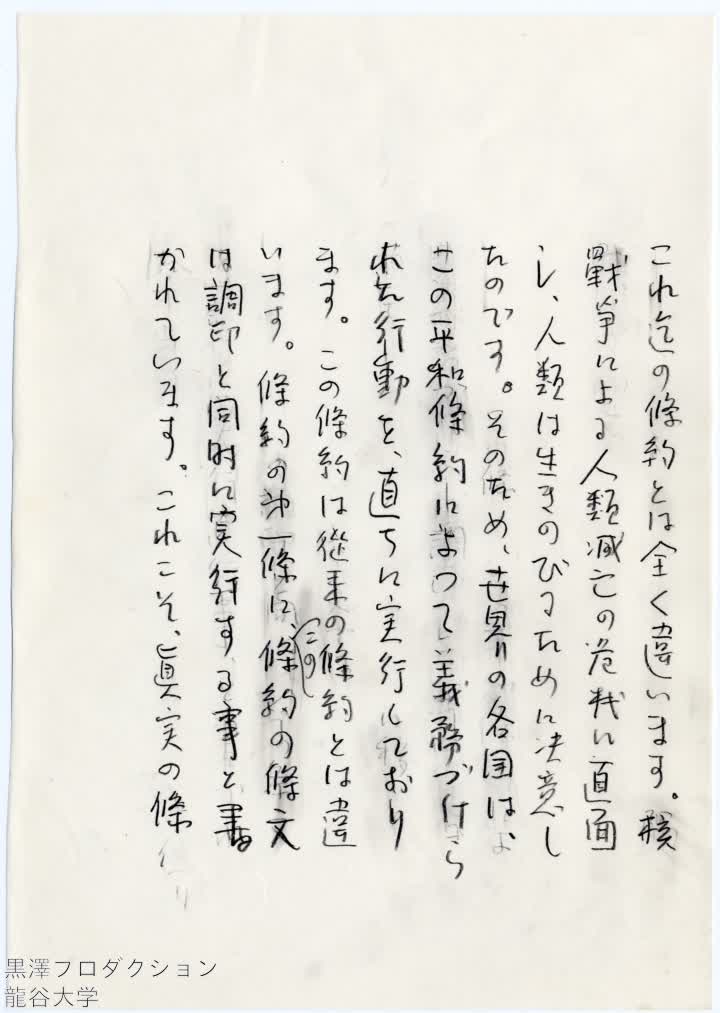 これ迄の條約とは全く違います。核
戰爭による人類滅亡の危机に直面
し、人類は生きのびるために決意し
たのです。そのため、世界の各国は、
この平和條約によって義務づけら
れた行動を、直ちに実行しており
ます。この條約は従来の條約とは違
います。條約の第一條に、この條約の條文
は調印と同時に実行する事と書
かれています。これこそ、眞実の條
黒澤プロダクション
龍谷大学